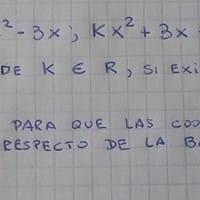 ² - 3x ; Kx² + 3x
DE K ∈ R, SI EXI
PARA QUE LAS COO
RESPECTO DE LA B